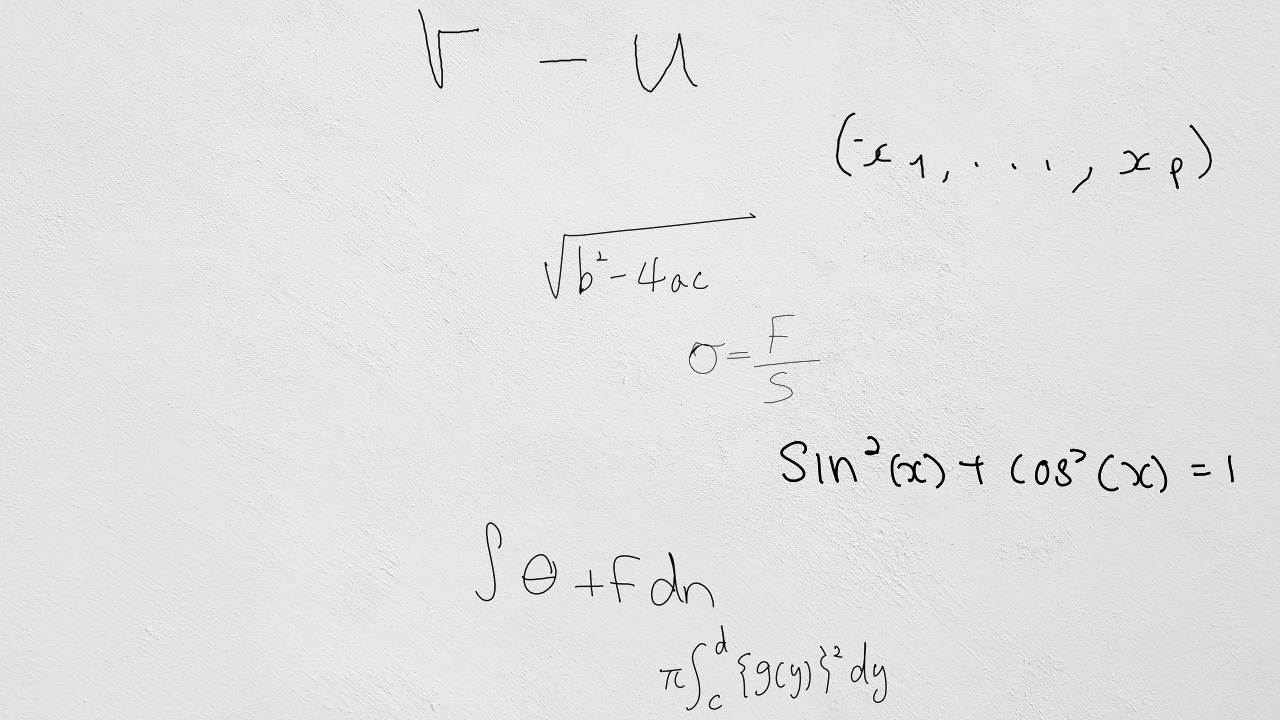 r - u
(x₁, ..., xₚ)
√(b² - 4ac)
σ = F/S
Sin²(x) + cos²(x) = 1
∫ θ + f dn
π∫_c^d {g(y)}² dy